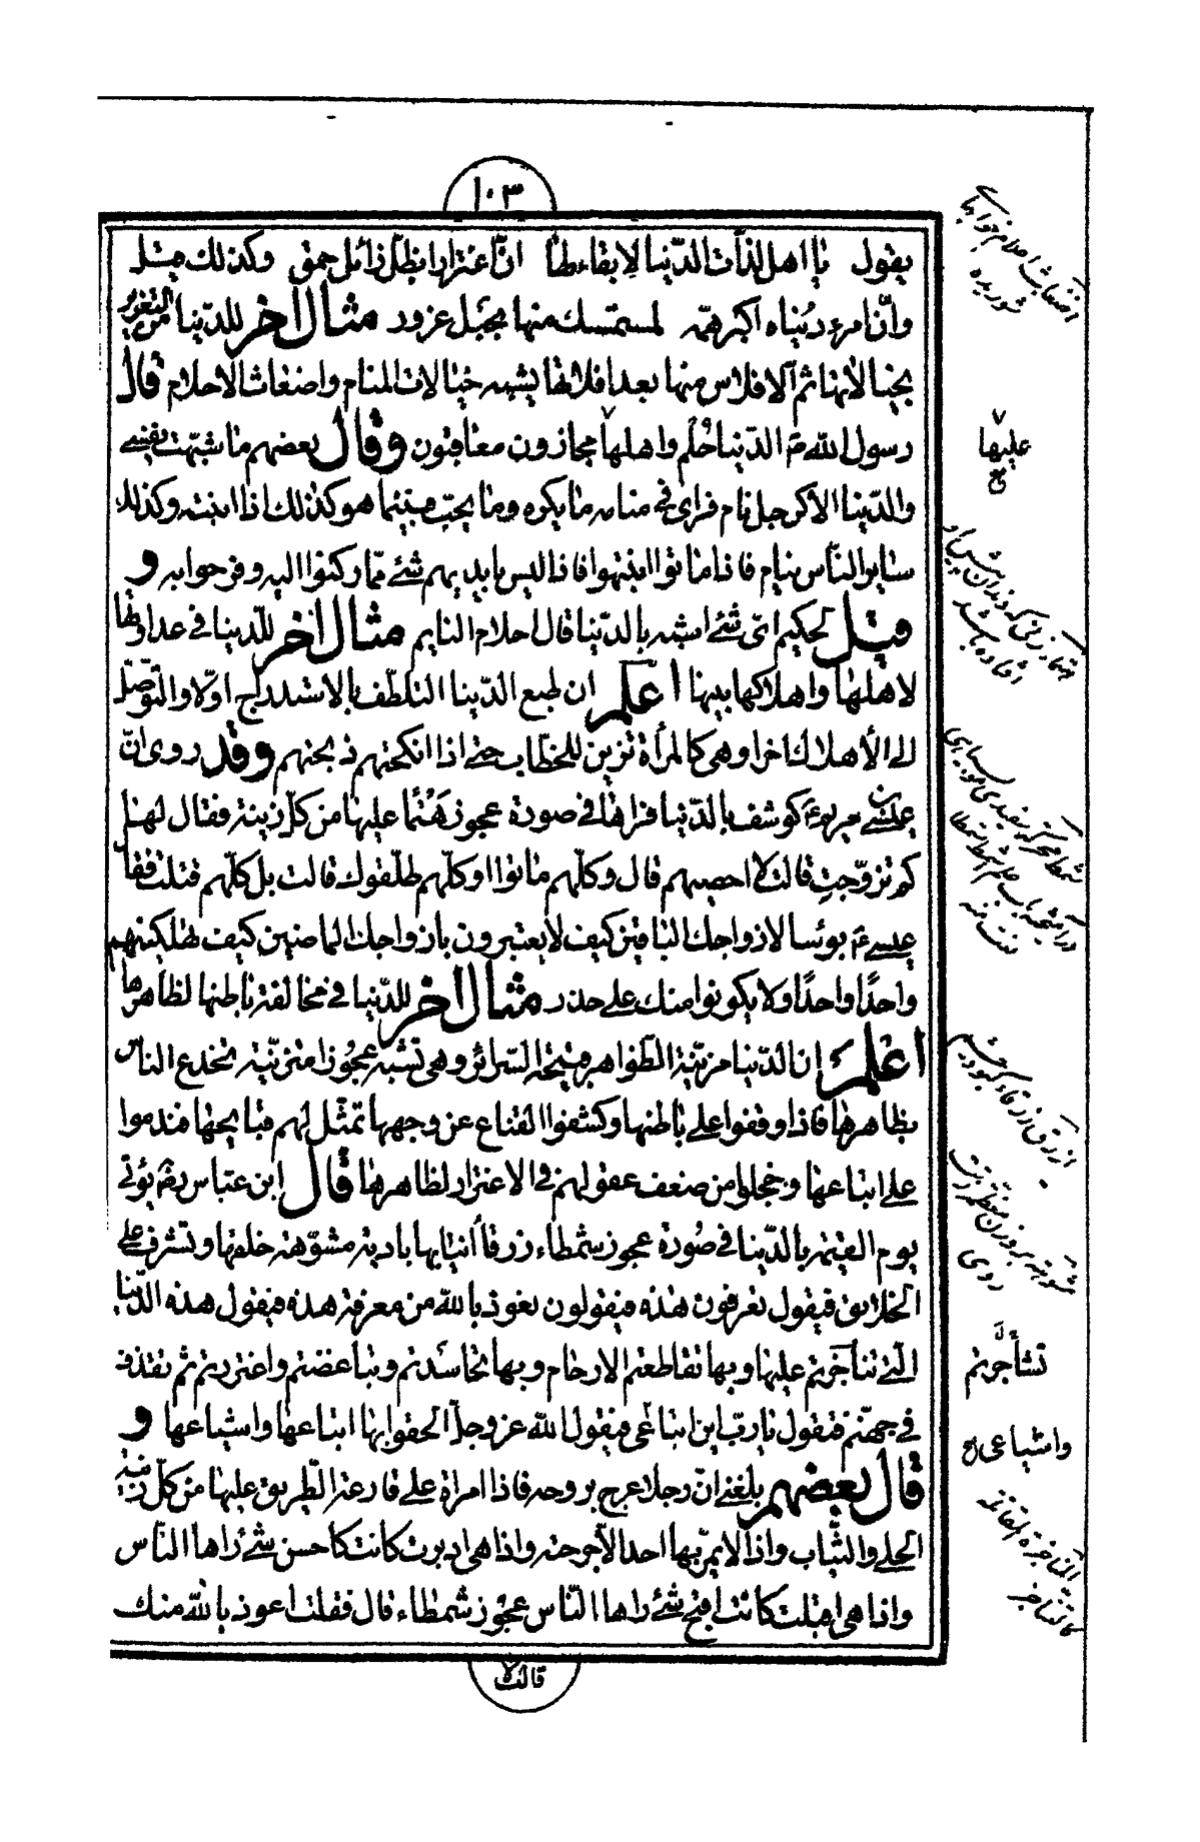 ١٠٣
يقول يا اهل لذّات الدّنيا لا بقاء لها انّ اغترارا بظلّ زائل حمق وكذلك ميثل
وانّ امرء دنياه اكبر همّه لمستمسك منها بحبل غرور مثال اخر للدّنيا من التغرير
بخيالاتها ثم الافلاس منها بعد افلاتها يشبه خيالات المنام واضغاث الاحلام قال
رسول الله ص الدّنيا حُلُم واهلها مجازون معاقبون وقال بعضهم ما شبّهت نفسي
والدّنيا الا كرجل نام فراى في منامه ما يكره وما يحبّ فبينما هو كذلك اذا انتبه وكذلك
ساير النّاس نيام فاذا ماتوا انتبهوا فاذا ليس بايديهم شئ ممّا ركنوا اليه وفرحوا به و
قيل لحكيم ايّ شئ اشبه بالدّنيا قال احلام النايم مثال اخر للدّينا في عداوتها
لاهلها واهلاكها بينها اعلم ان طبع الدّنيا التلطّف بالاستدراج اوّلا والتوصّل
الى الأهلاك اخرا وهى كالمرأة تزين للخطّاب حتى اذا انكحتهم ذبحتهم وقد روى انّ
عيسى بن مريم ع كوشف بالدّنيا فراها في صورة عجوز هَتْمًا عليها من كلّ زينة فقال لها
كم تزوّجتِ قالت لا احصيهم قال وكلّهم ماتوا او كلّهم طلّقوك قالت بل كلّهم قتلت فقال
عيسى ع بوئسا لازواجك الباقين كيف لا يعتبرون بازواجك الماضين كيف تهلكينهم
واحدًا واحدًا ولا يكونوا منك على حذر مثال اخر للدّنيا في مخالفة باطنها لظاهرها
اعلم ان الدّنيا مزيّنة الظواهر قبيحة السّرائر وهى تشبه عجوزا متزيّنة تخدع الناس
بظاهرها فاذا وقفوا على باطنها وكشفوا القناع عن وجهها تمثّل لهم قبايحها فندموا
على اتباعها وخجلوا من ضعف عقولهم في الاغترار لظاهرها قال ابن عباس رضه يؤتى
يوم القيمة بالدّنيا في صُورة عجوز شمطاء زرقا أنيابها بادية مشوّهة خلقها وتشرف على
الخلايق فيقول تعرفون هذه فيقولون نعوذ بالله من معرفة هذه فيقول هذه الدّنيا
الّتي تناجرتم عليها وبها تقاطعتم الارحام وبها تحاسدتم وتباغضتم واغتررتم ثم تقذف
في جهنّم فتقول يا ربّ اين اتباعي فيقول الله عز وجلّ الحقوا بها اتباعها واشياعها و
قال بعضهم بلغني انّ رجلا عرج بروحه فاذا امراة على قارعة الطّريق عليها من كلّ زينة
الحلى والثّياب واذا لا يمرّ بها احد الا جرحته واذا هى ادبرت كانت كاحسن شئ راها النّاس
واذا هى اقبلت كانت اقبح شئ راها النّاس عجوز شمطاء قال فقلت اعوذ بالله منك
قالت لا
اضغاث احلام خوابهاى
شوريده
عليها
افتاده باشد
تشأجرتم
واشياعى